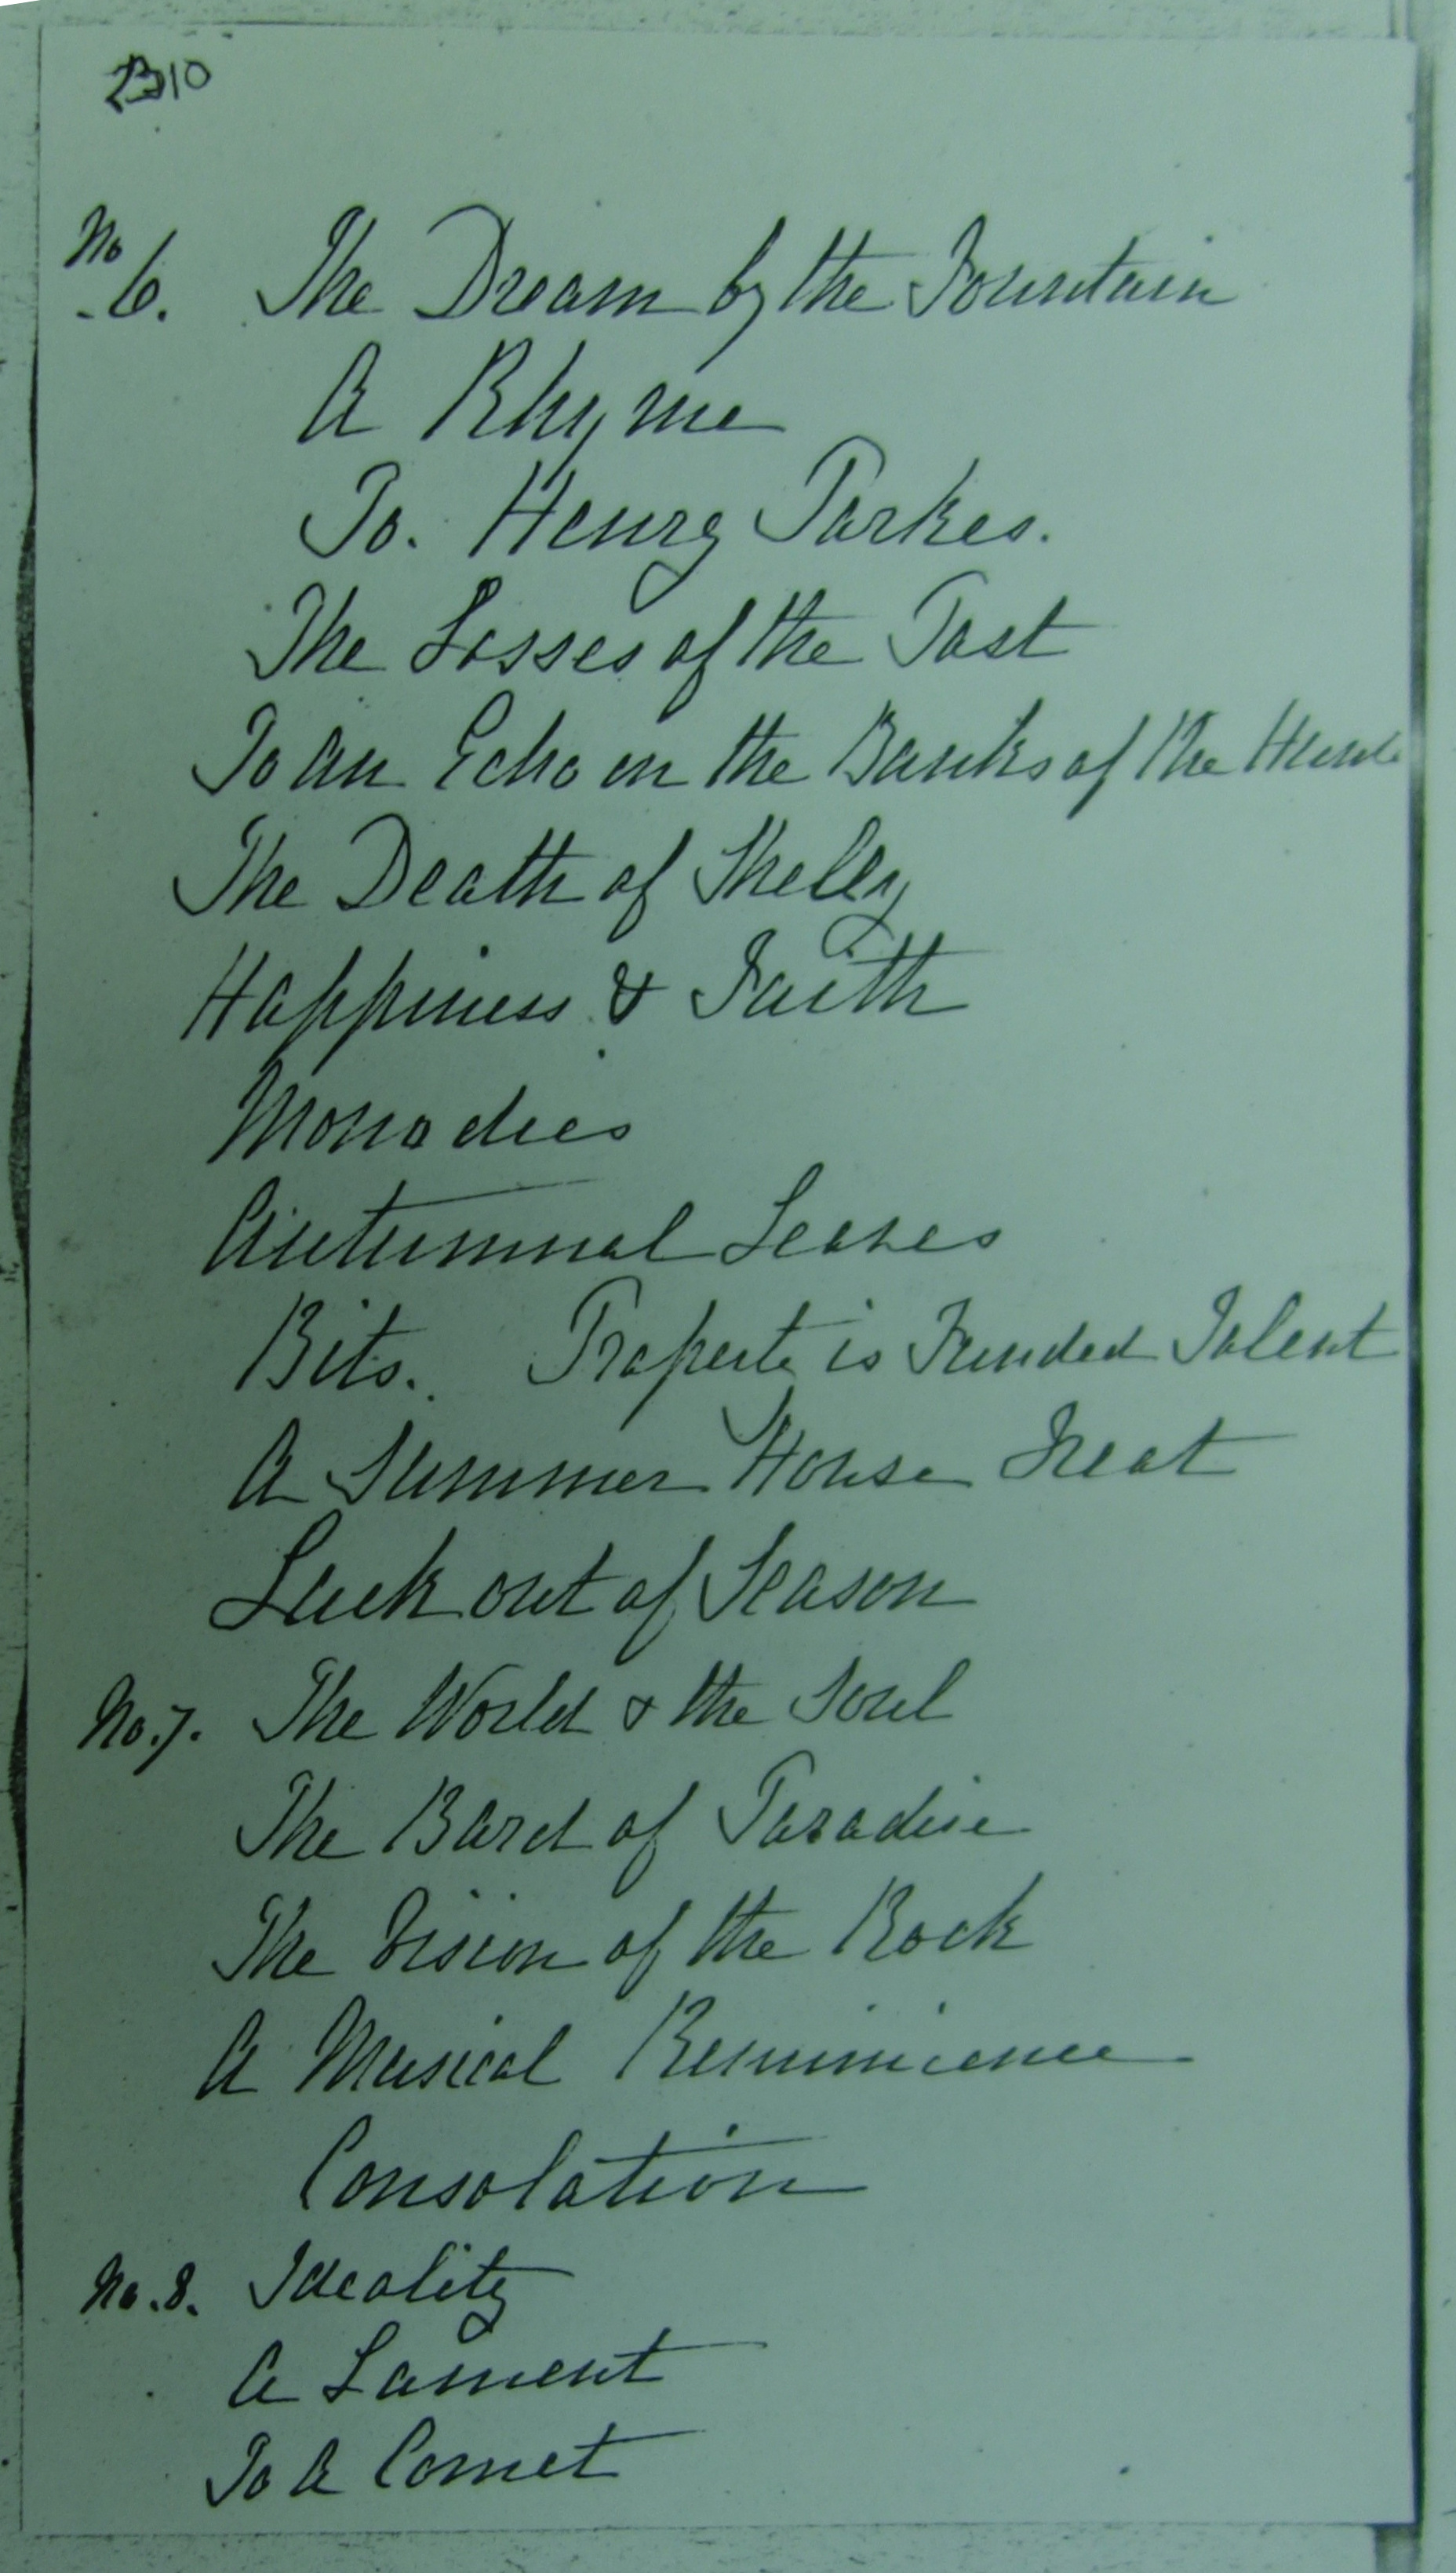 10
No 6. The Dream by the Fountain
A Rhyme
To. Henry Parkes.
The Losses of the Past
To an Echo on the Banks of the
The Death of Shelly
Happiness & Faith
Monodies
Autumnal Leaves
Bits. Property is Funded Talent
A Summer House Treat
Luck out of Season
No. 7. The World & the Soul
The Bard of Paradise
The Vision of the Rock
A Musical Reminicence
Consolation
No. 8. Ideality
A Lament
To A Comet